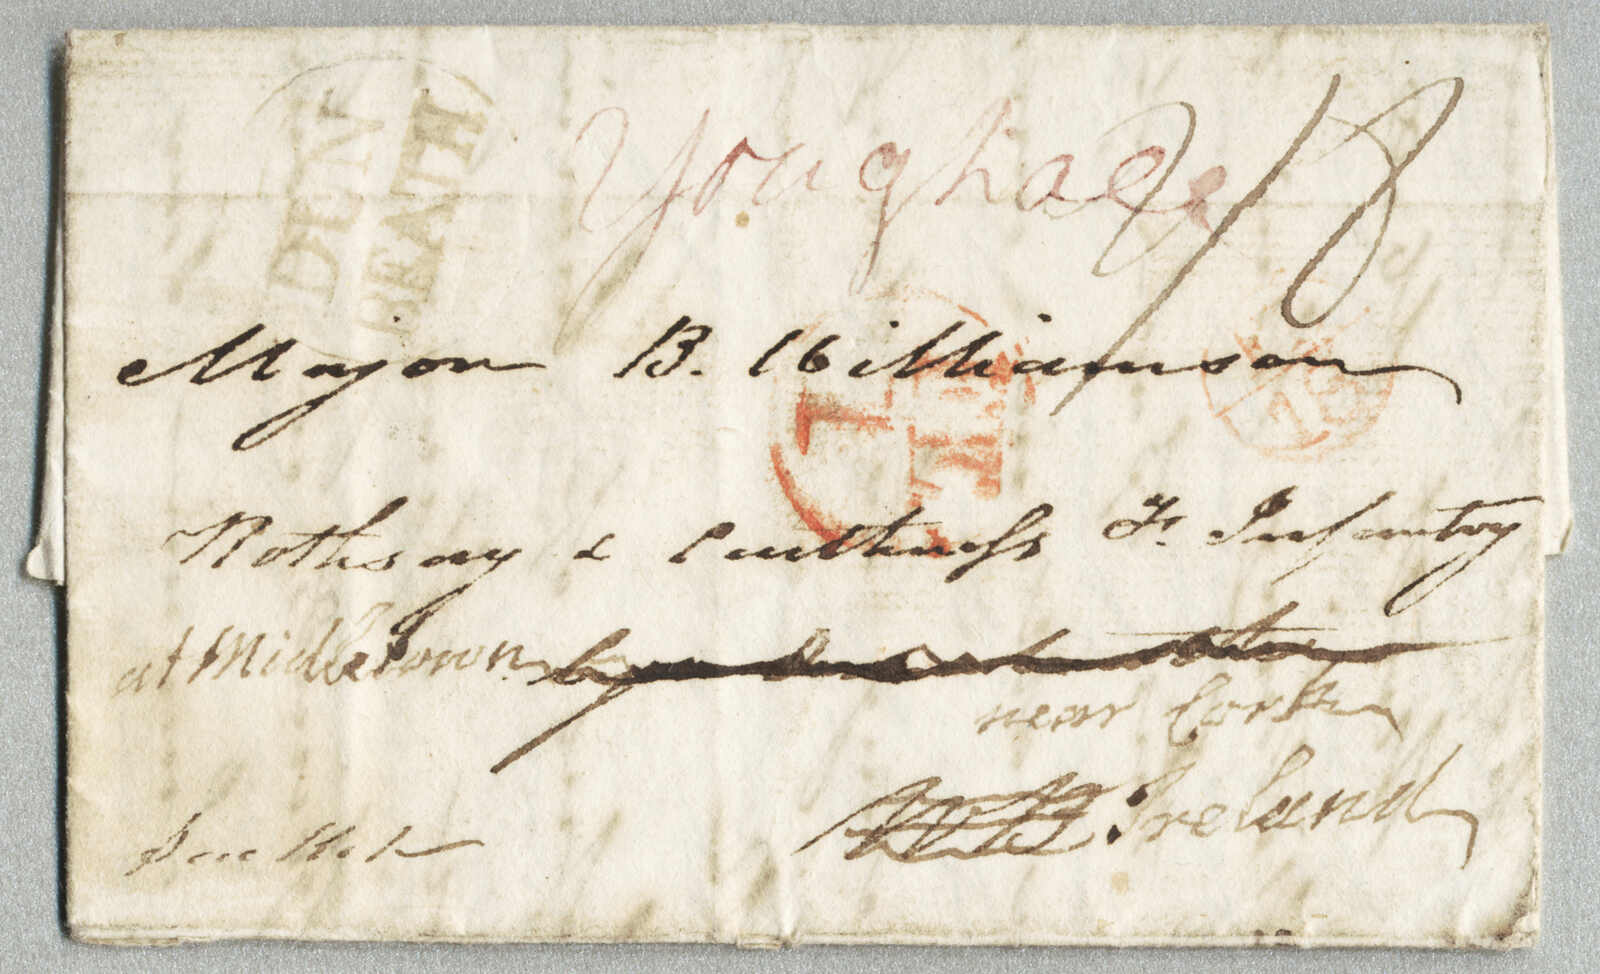 DUN
BEATH
Youghall
Major B. Williamson
Rothsay & Caithness F. Infantry
at Midletown
near Cork
Ireland